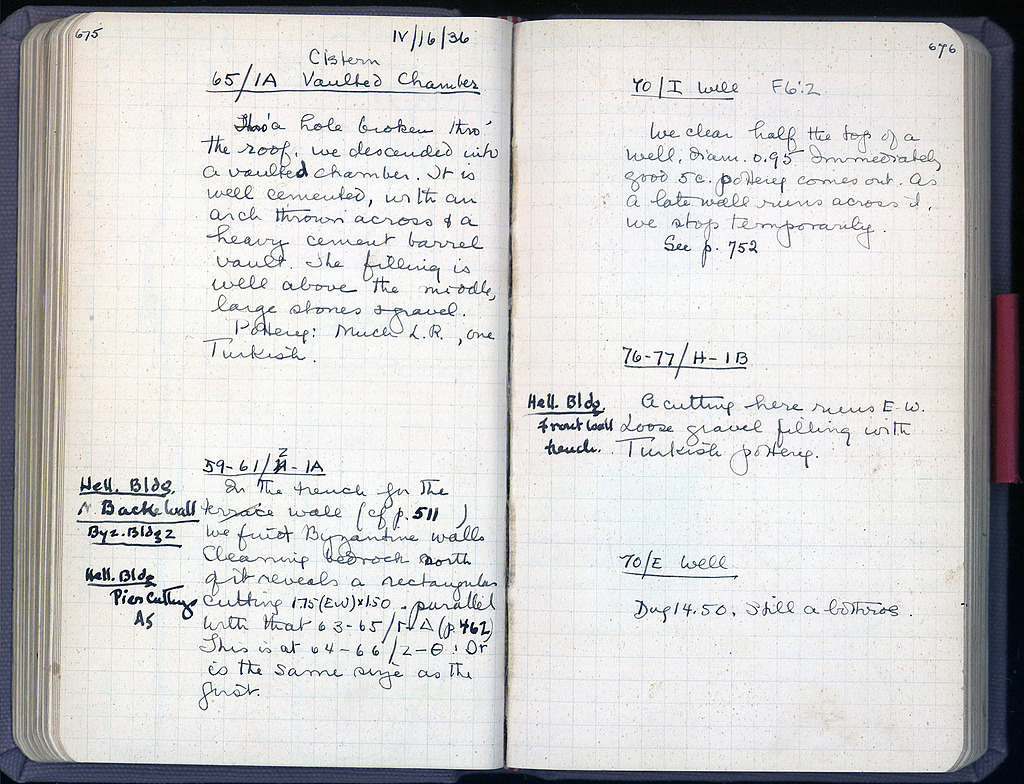 675
IV/16/36
Cistern
65/1A Vaulted Chamber
Thro' a hole broken thro'
the roof, we descended into
a vaulted chamber. It is
well cemented, with an
arch thrown across & a
heavy cement barrel
vault. The filling is
well above the middle,
large stones & gravel.
Pottery: Much L.R., one
Turkish.
59-61/Z-1A
Hell. Bldg.
N. Back Wall
Byz. Bldg 2
In the trench for the
terrace wall (cf p. 511 )
we find Byzantine walls
Cleaning bedrock north
of it reveals a rectangular
cutting 1.75 (EW) x 1.50, parallel
with that 63-65/Γ-Δ (p. 462)
This is at 64-66/Z-Θ. It
is the same size as the
first.
Hell. Bldg
Pier Cuttings
A5
676
70/I Well F6:2
We clear half the top of a
well, diam. 0.95. Immediately
good 5c. pottery comes out. As
a late wall runs across it,
we stop temporarily.
See p. 752
76-77/H-1B
Hell. Bldg.
Front Wall
trench.
A cutting here runs E-W.
Loose gravel filling with
Turkish pottery.
70/E Well
Dug 14.50. Still a bothros.